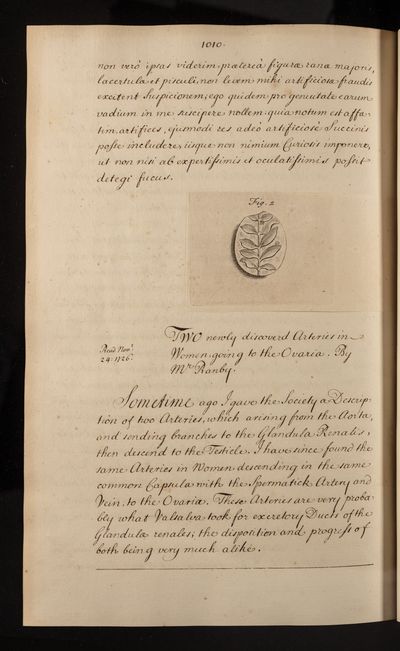 1010.
non verò ipsas viderim, præterea figuræ ranæ majoris,
lacertulæ et pisculi, non levem mihi artificiosæ fraudis
excitent suspicionem; ego quidem pro genuitate earum
vadium in me suscipere nollem, quia notum est affa-
tim, artifices, ejusmodi res adeò artificiosè Succinis
posse includere, iisque non nimium Curiosis imponere,
ut non nisi ab expertissimis et oculatissimis possit
detegi fucus.
Fig. 2
Read Nov.r
24. 1726.
TWO newly discoverd Arteries in
Women going to the Ovaria. By
Mr. Ranby.
Sometime ago I gave the Society a Descrip-
tion of two Arteries, which arising from the Aorta,
and sending branches to the Glandula Renalis,
then descend to the Testicle. I have since found the
same Arteries in Women descending in the same
common Capsula with the Spermatick Artery and
Vein, to the Ovaria. These Arteries are very proba-
bly what Valsalva took for excretory Ducts of the
Glandulæ renales; the disposition and progress of
both being very much alike.